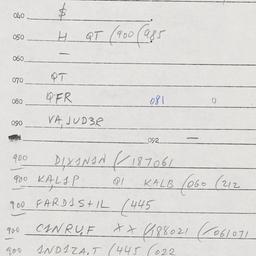 040 $
050 H QT (900 (985
060 —
070 QT
080 QFR 081 0
090 VA, JUD3R
092 —
900 DIXIN1N (/187061
900 KAL1P Q1 KALB (060 (212
900 FARD1S+1L (445
900 C1NRUF XX (/188021 (/061071
900 1ND1ZA,T (445 (022